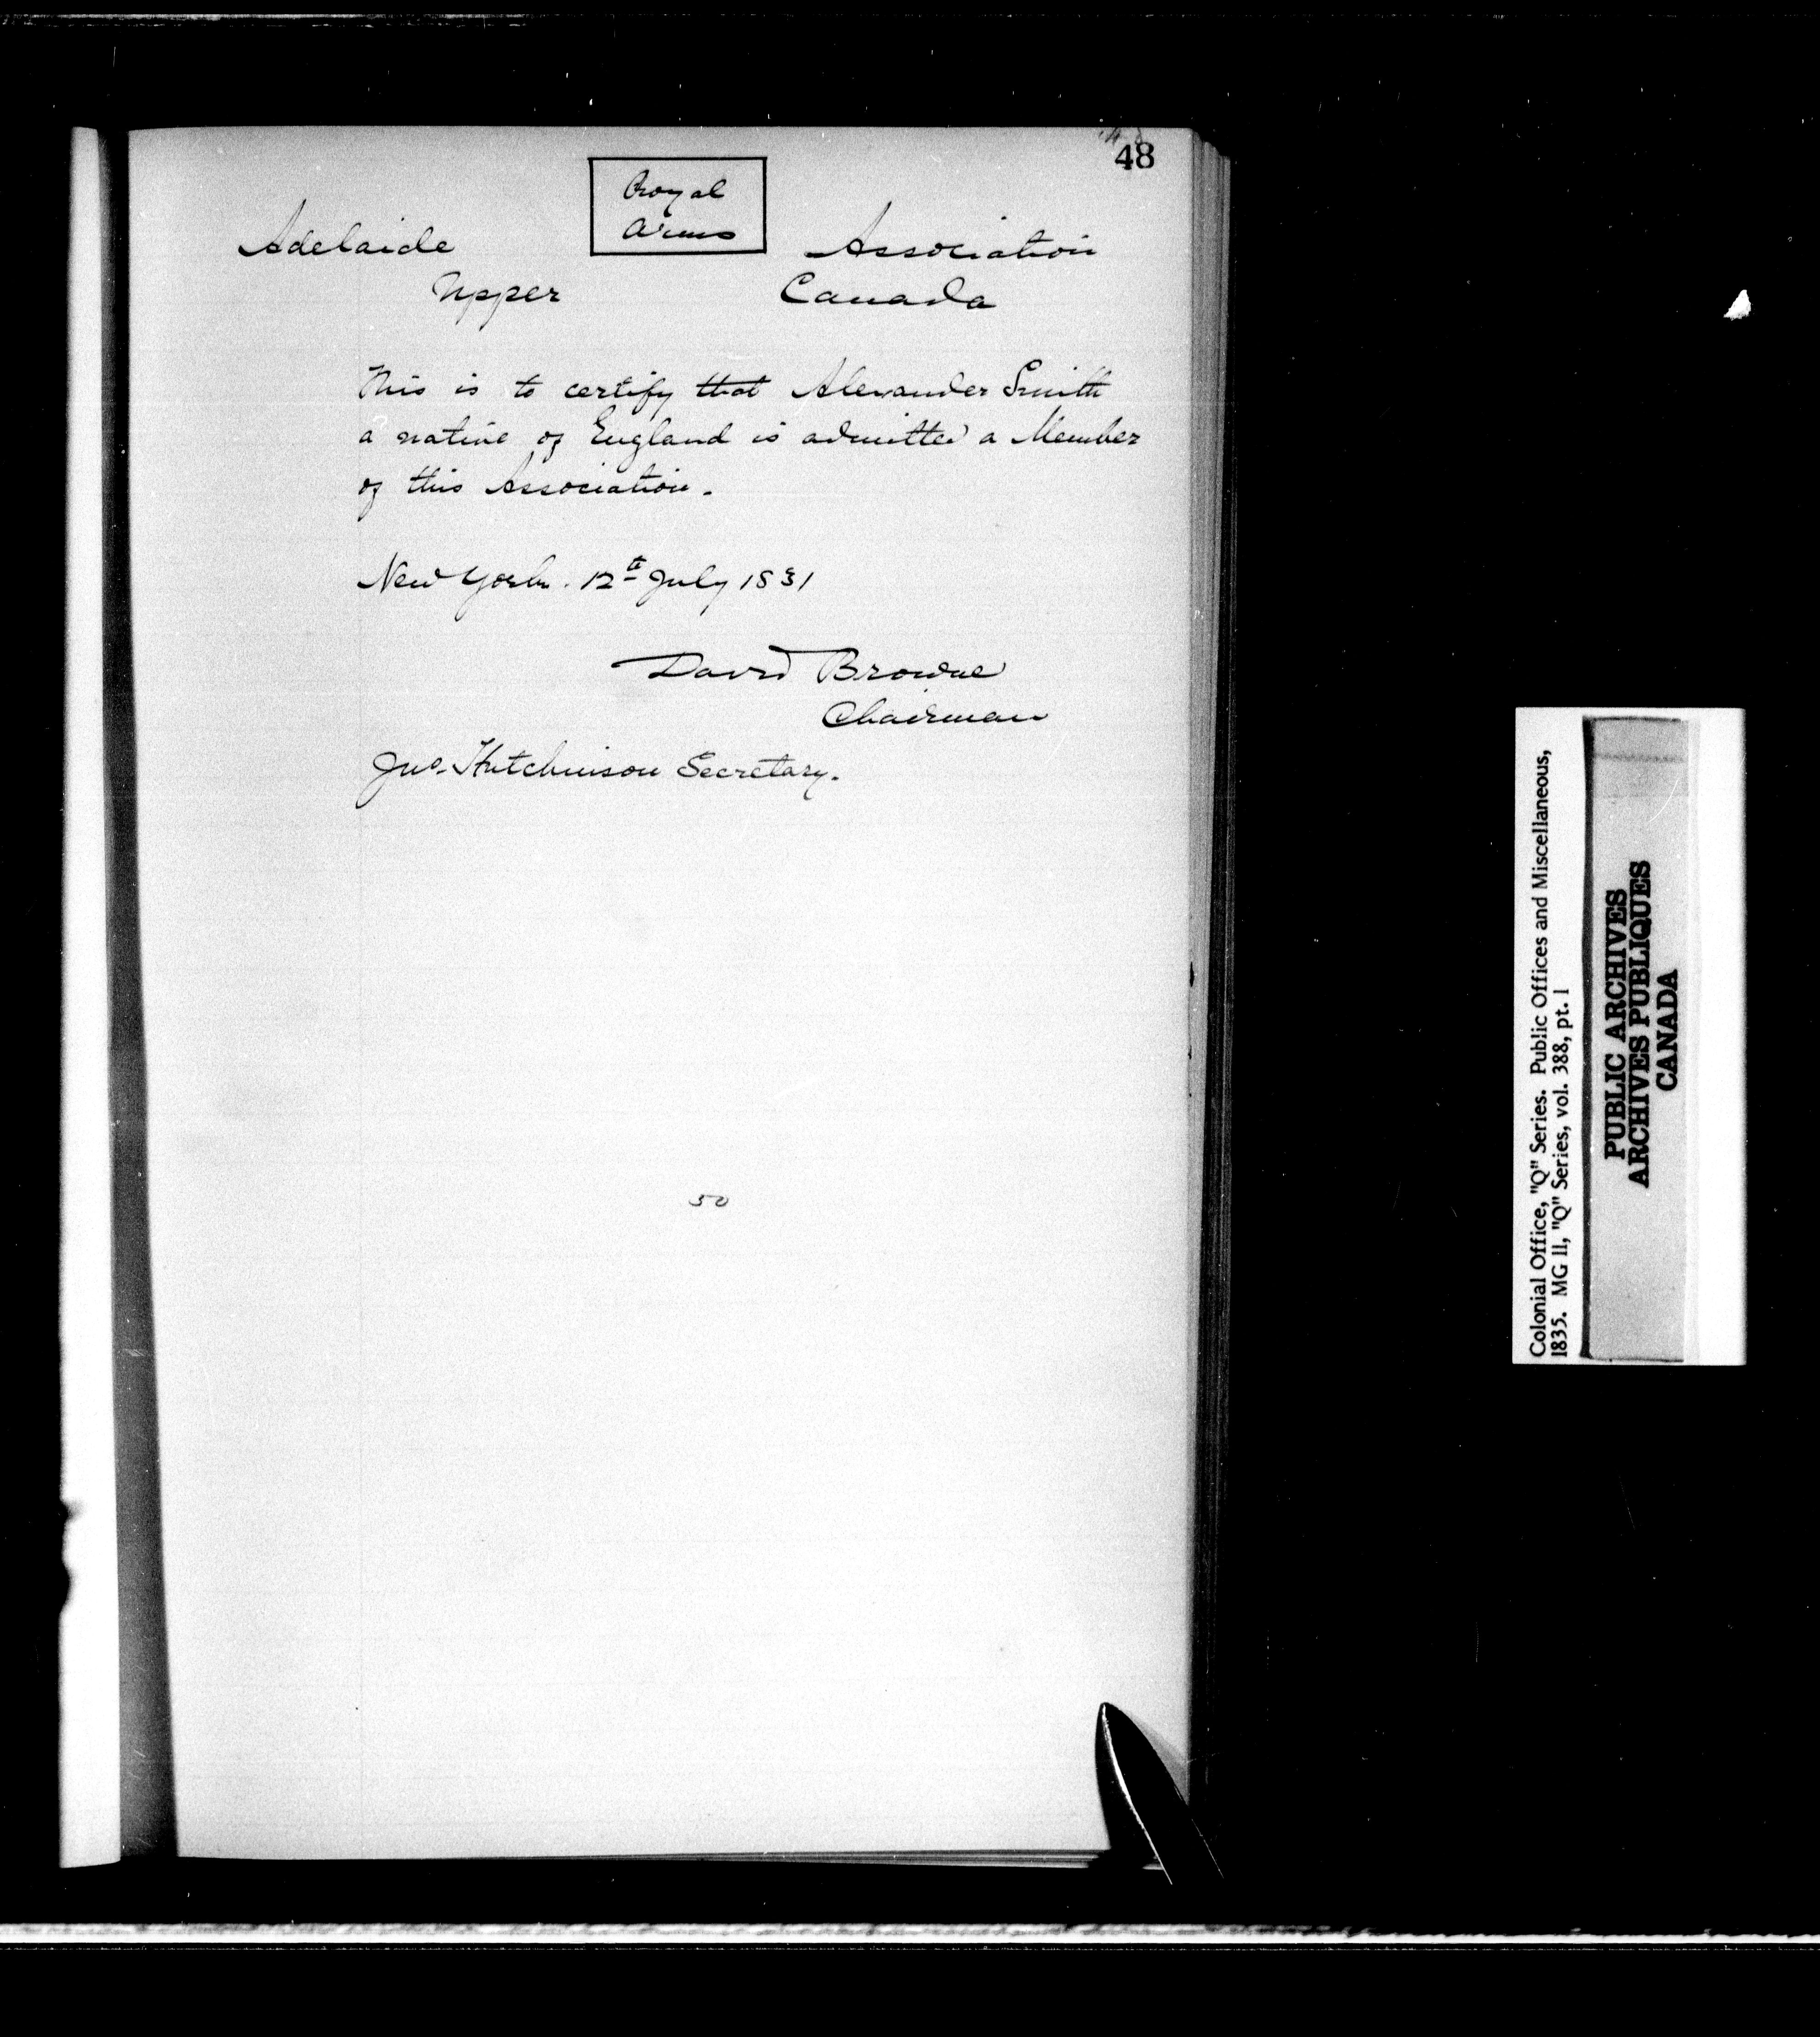 48
Royal
Arms
Adelaide Association
Upper Canada
This is to certify that Alexander Smith
a native of England is admitted a Member
of this Association.
New York. 12th July 1831
David Browne
Chairman
Jno. Hutchinson Secretary.
50
Colonial Office, "Q" Series. Public Offices and Miscellaneous,
1835. MG 11, "Q" Series, vol. 388, pt. 1
PUBLIC ARCHIVES
ARCHIVES PUBLIQUES
CANADA